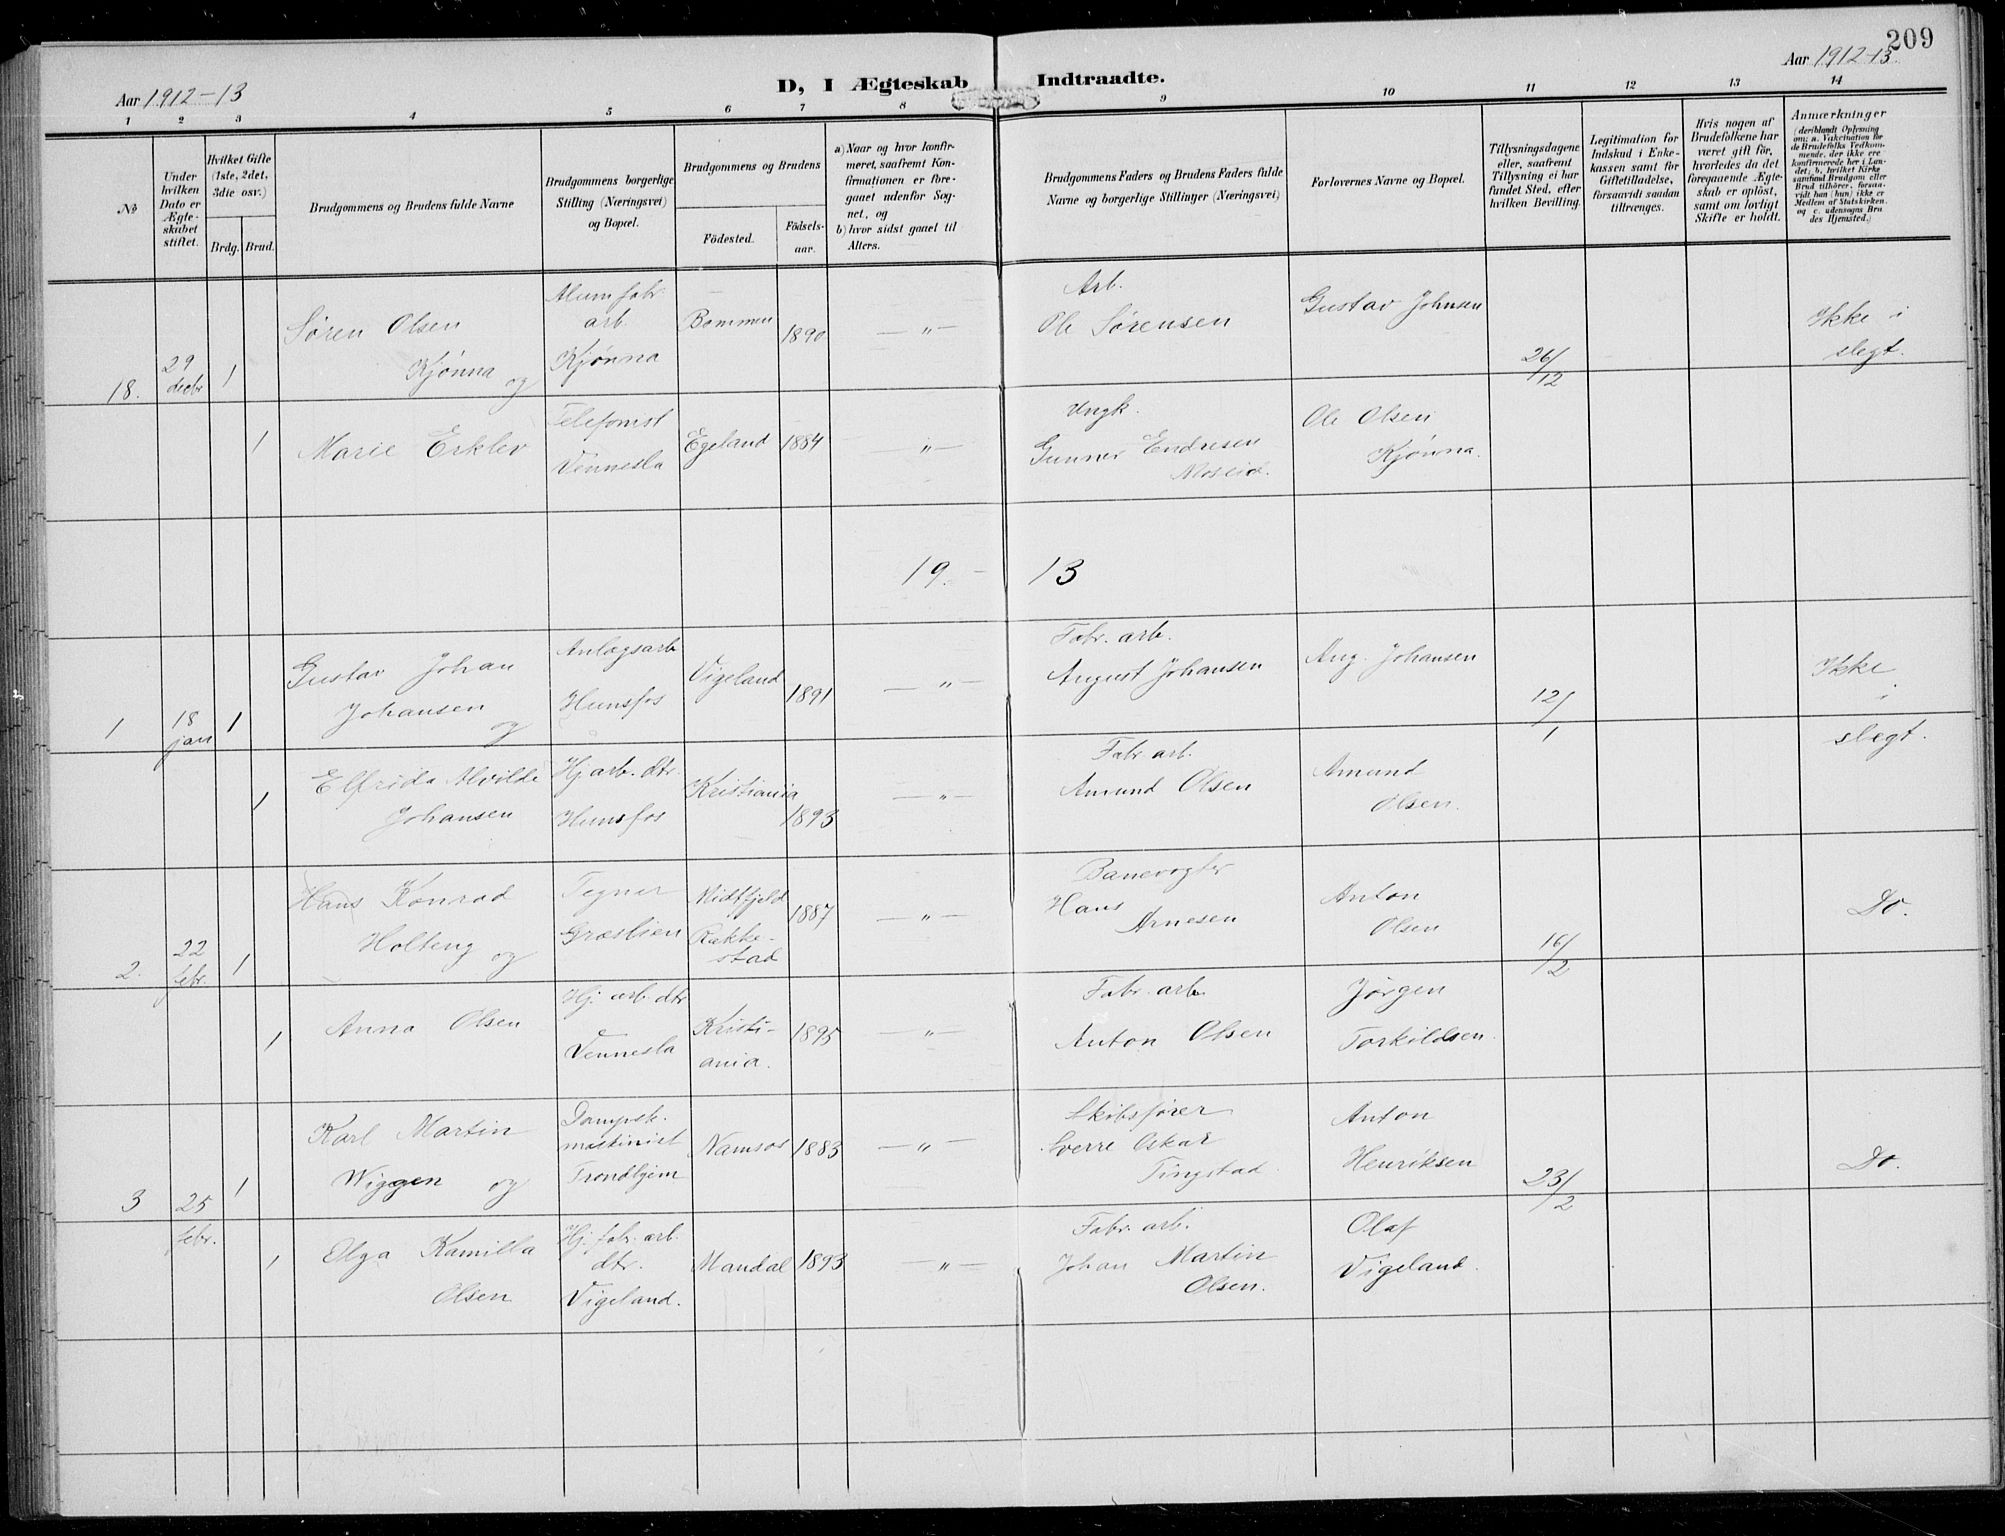 209
Aar 1912-13
D, I Ægteskab Indtraadte.
Aar 1912-13
1 2 3 4 5 6 7 8 9 10 11 12 13 14
No
Under hvilken Dato er Ægteskabet stiftet.
Hvilket Gifte (1ste, 2det, 3die osv.)
Brdg. Brud.
Brudgommens og Brudens fulde Navne
Brudgommens borgerlige Stilling (Næringsvei) og Bopæl.
Brudgommens og Brudens
Födested.
Födselsaar.
a) Naar og hvor konfirmeret, saafremt Konfirmationen er foregaaet udenfor Sognet, og
b) hvor sidst gaaet til Alters.
Brudgommens Faders og Brudens Faders fulde Navne og borgerlige Stillinger (Næringsvei)
Forlovernes Navne og Bopæl.
Tillysningsdagene eller, saafremt Tillysning ei har fundet Sted, efter hvilken Bevilling.
Legitimation for Indskud i Enkekassen samt for Giftetilladelse, forsaavidt saadan tiltrænges.
Hvis nogen af Brudefolkene har været gift för, hvorledes da det foregaaende Ægteskab er oplöst, samt om lovligt Skifte er holdt.
Anmærkninger
(deriblandt Oplysning om: a. Vakcination for de Brudefolks Vedkommende, der ikke ere konfirmerede her i Landet; b. hvilket Kirkesamfund Brudgom eller Brud tilhörer, forsaavidt han (hun) ikke er Medlem af Statskirken, og c. udensogns Brudes Hjemsted.)
18. 29 decbr 1
Søren Olsen
Kjønna og
Alum fabr
arb.
Kjønna
Bommen 1890 — " —
Arb.
Ole Sørensen
Gustav Johnsen
26/12
Ikke i
slegt.
1
Marie Erklev
Telefonist
Vennesla
Egeland 1884 — " —
Ungk.
Gunner Endresen
Moseid.
Ole Olsen
Kjønna.
19 - 13
1 18 jan 1
Gustav Johan
Johansen og
Anlægsarb
Hunsfos
Vigeland 1891 — " —
Fabr. arb.
August Johansen
Aug. Johansen
12/1
Ikke
i
slegt.
1
Elfrida Alvilde
Johansen
Hj arb. dtr.
Hunsfos
Kristiania 1893 — " —
Fabr arb.
Amund Olsen
Amund
Olsen.
2. 22 febr. 1
Hans Konrad
Holteng og
Tegner
Græslien
Midtfjeld
Rakke-
stad
1887 — " —
Banevogter
Hans
Arnesen
Anton
Olsen
16/2
Do.
1
Anna Olsen
Hj. arb. dtr
Vennesla
Kristi-
ania.
1895 — " —
Fabr. arb
Anton Olsen
Jørgen
Torkildsen.
3 25 febr. 1
Karl Martin
Wiggen og
Dampsk.
maskinist
Trondhjem
Namsos 1883 — " —
Skibsfører
Sverre Oskar
Tingstad.
Anton
Henriksen
23/2
Do.
1
Olga Kamilla
Olsen
Hj. fabr. arb.
dtr.
Vigeland.
Mandal 1893 — " —
Fabr. arb.
Johan Martin
Olsen.
Olaf
Vigeland.